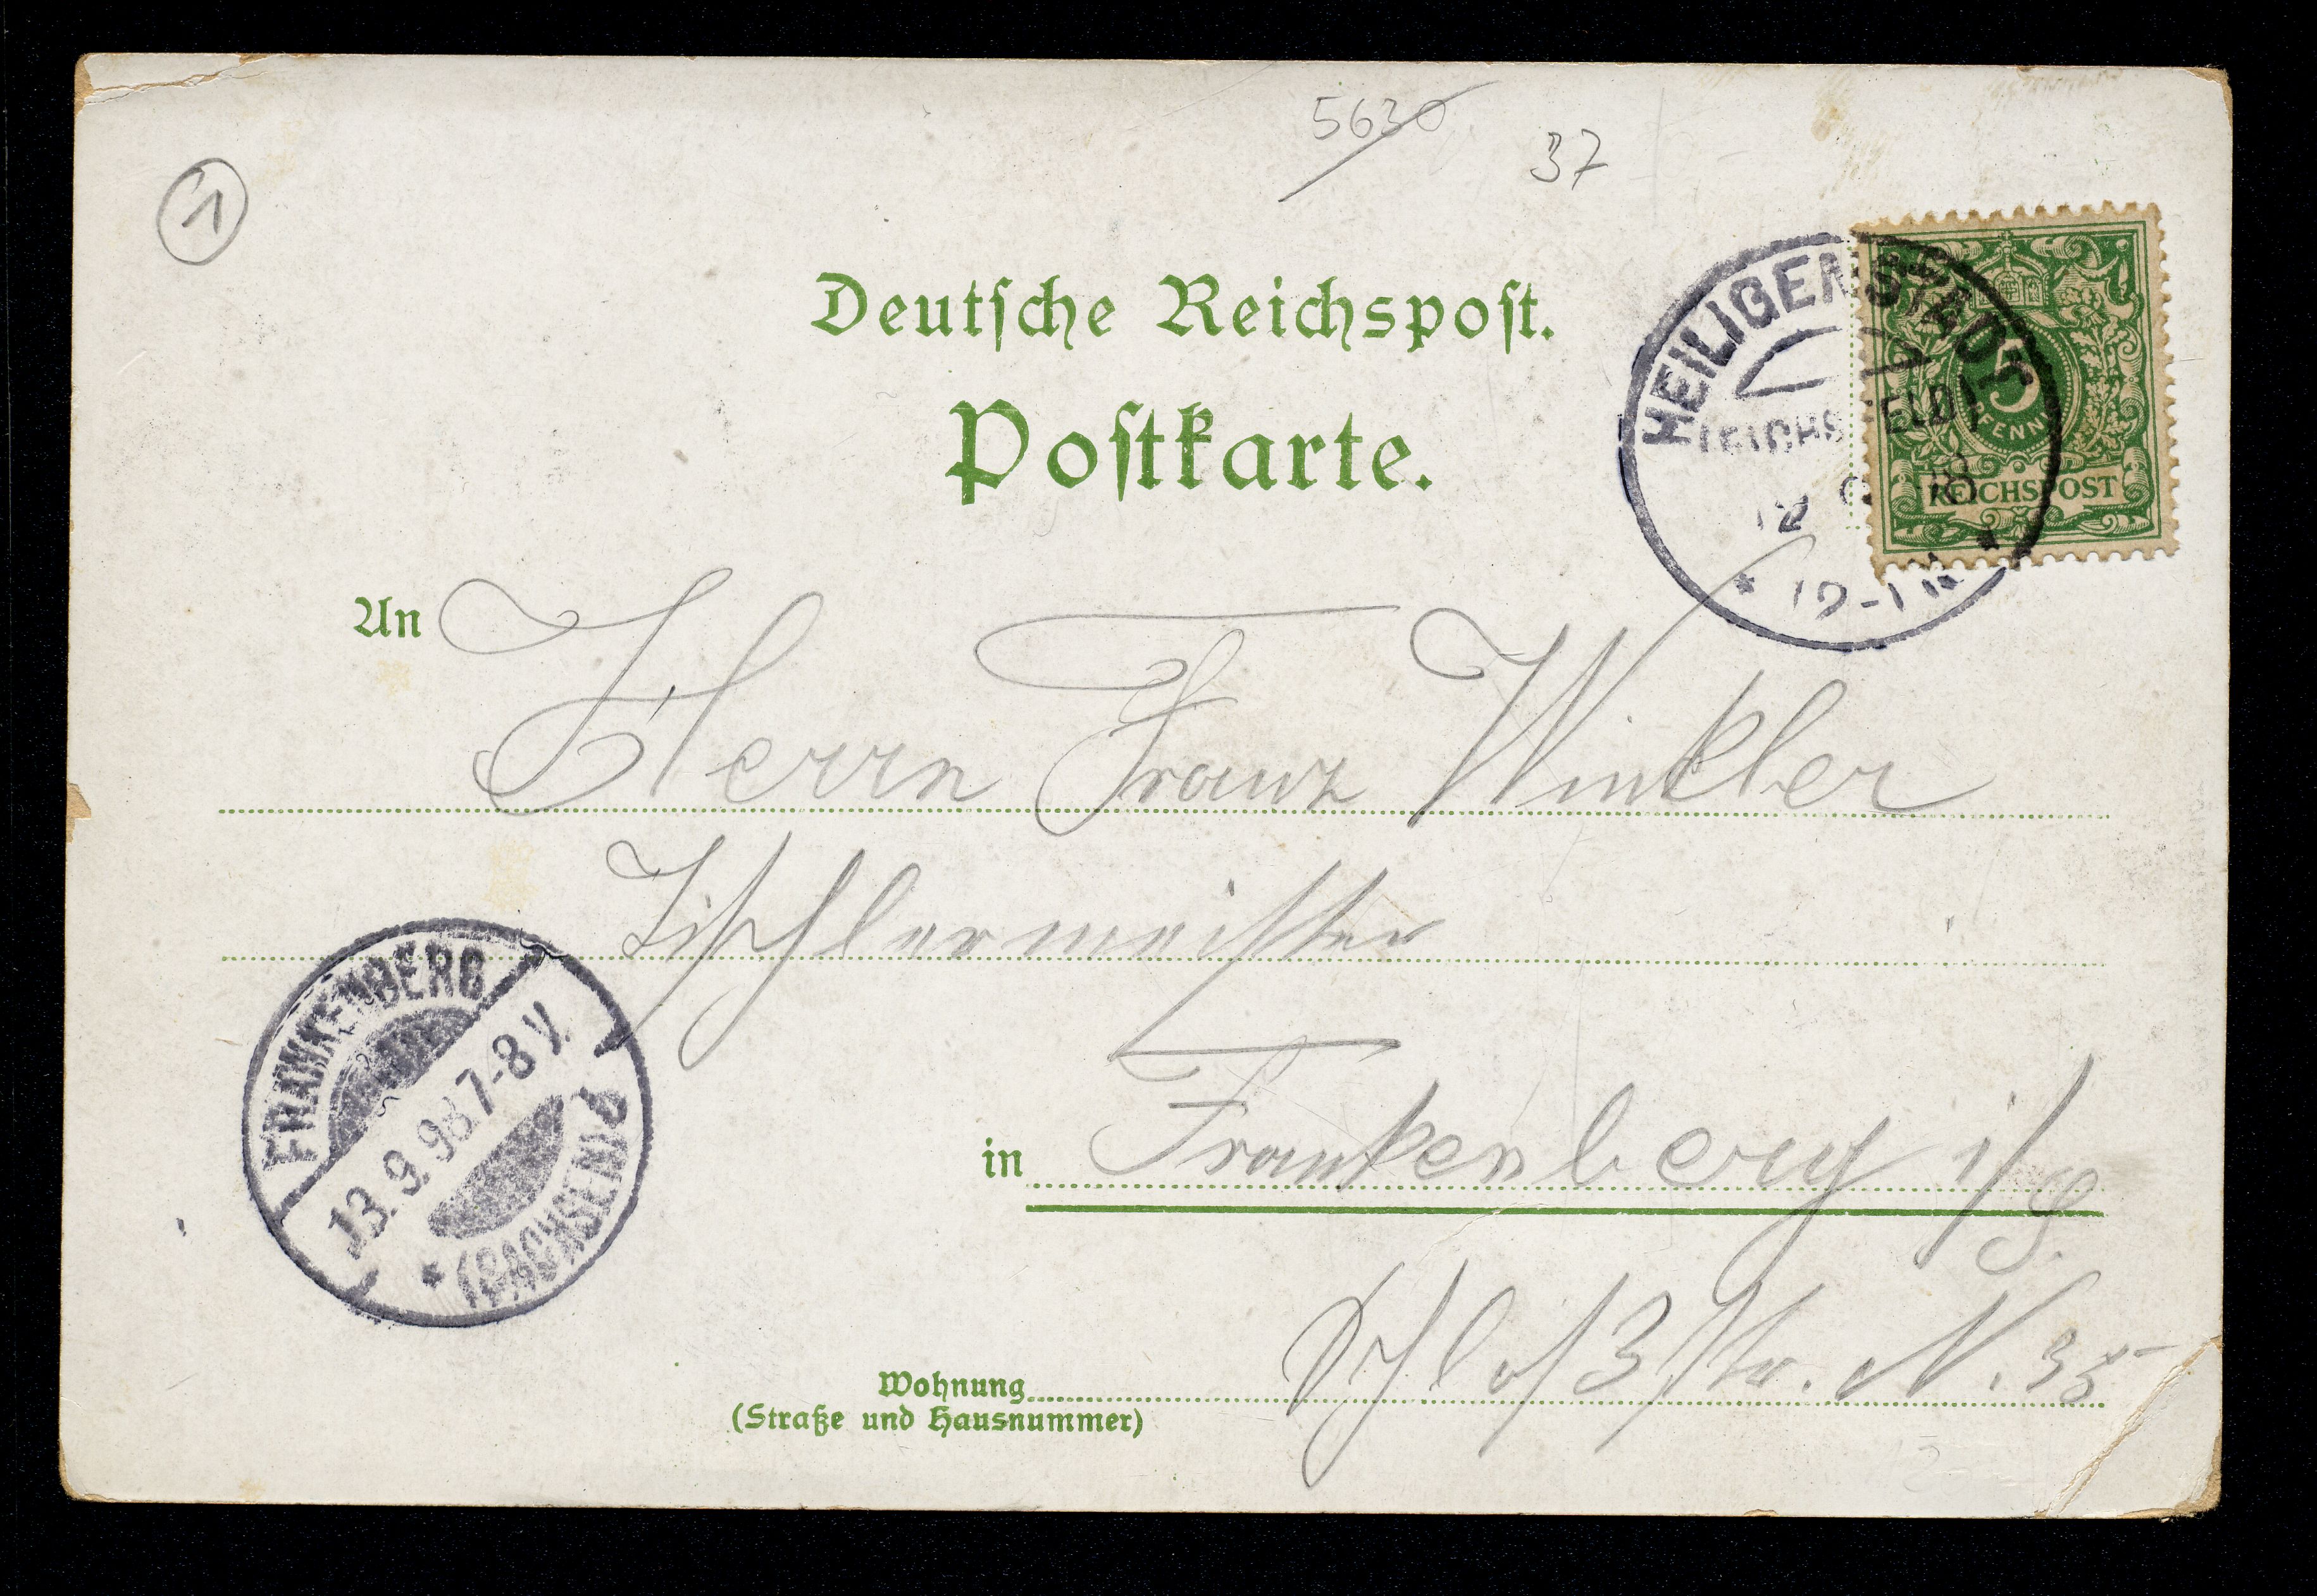 5630
37
1
Deutsche Reichspost.
Postkarte.
HEILIGENSTADT
(EICHSFELD)
12 9 98
* 12-1 N *
5
PFENNIG
REICHSPOST
An Herrn Franz Winkler
Tischlermeister
FRANKENBERG
13. 9. 98. 7-8 V.
* (SACHSEN)
in Frankenberg i/S.
Schloßstr. N. 35
Wohnung
(Straße und Hausnummer)